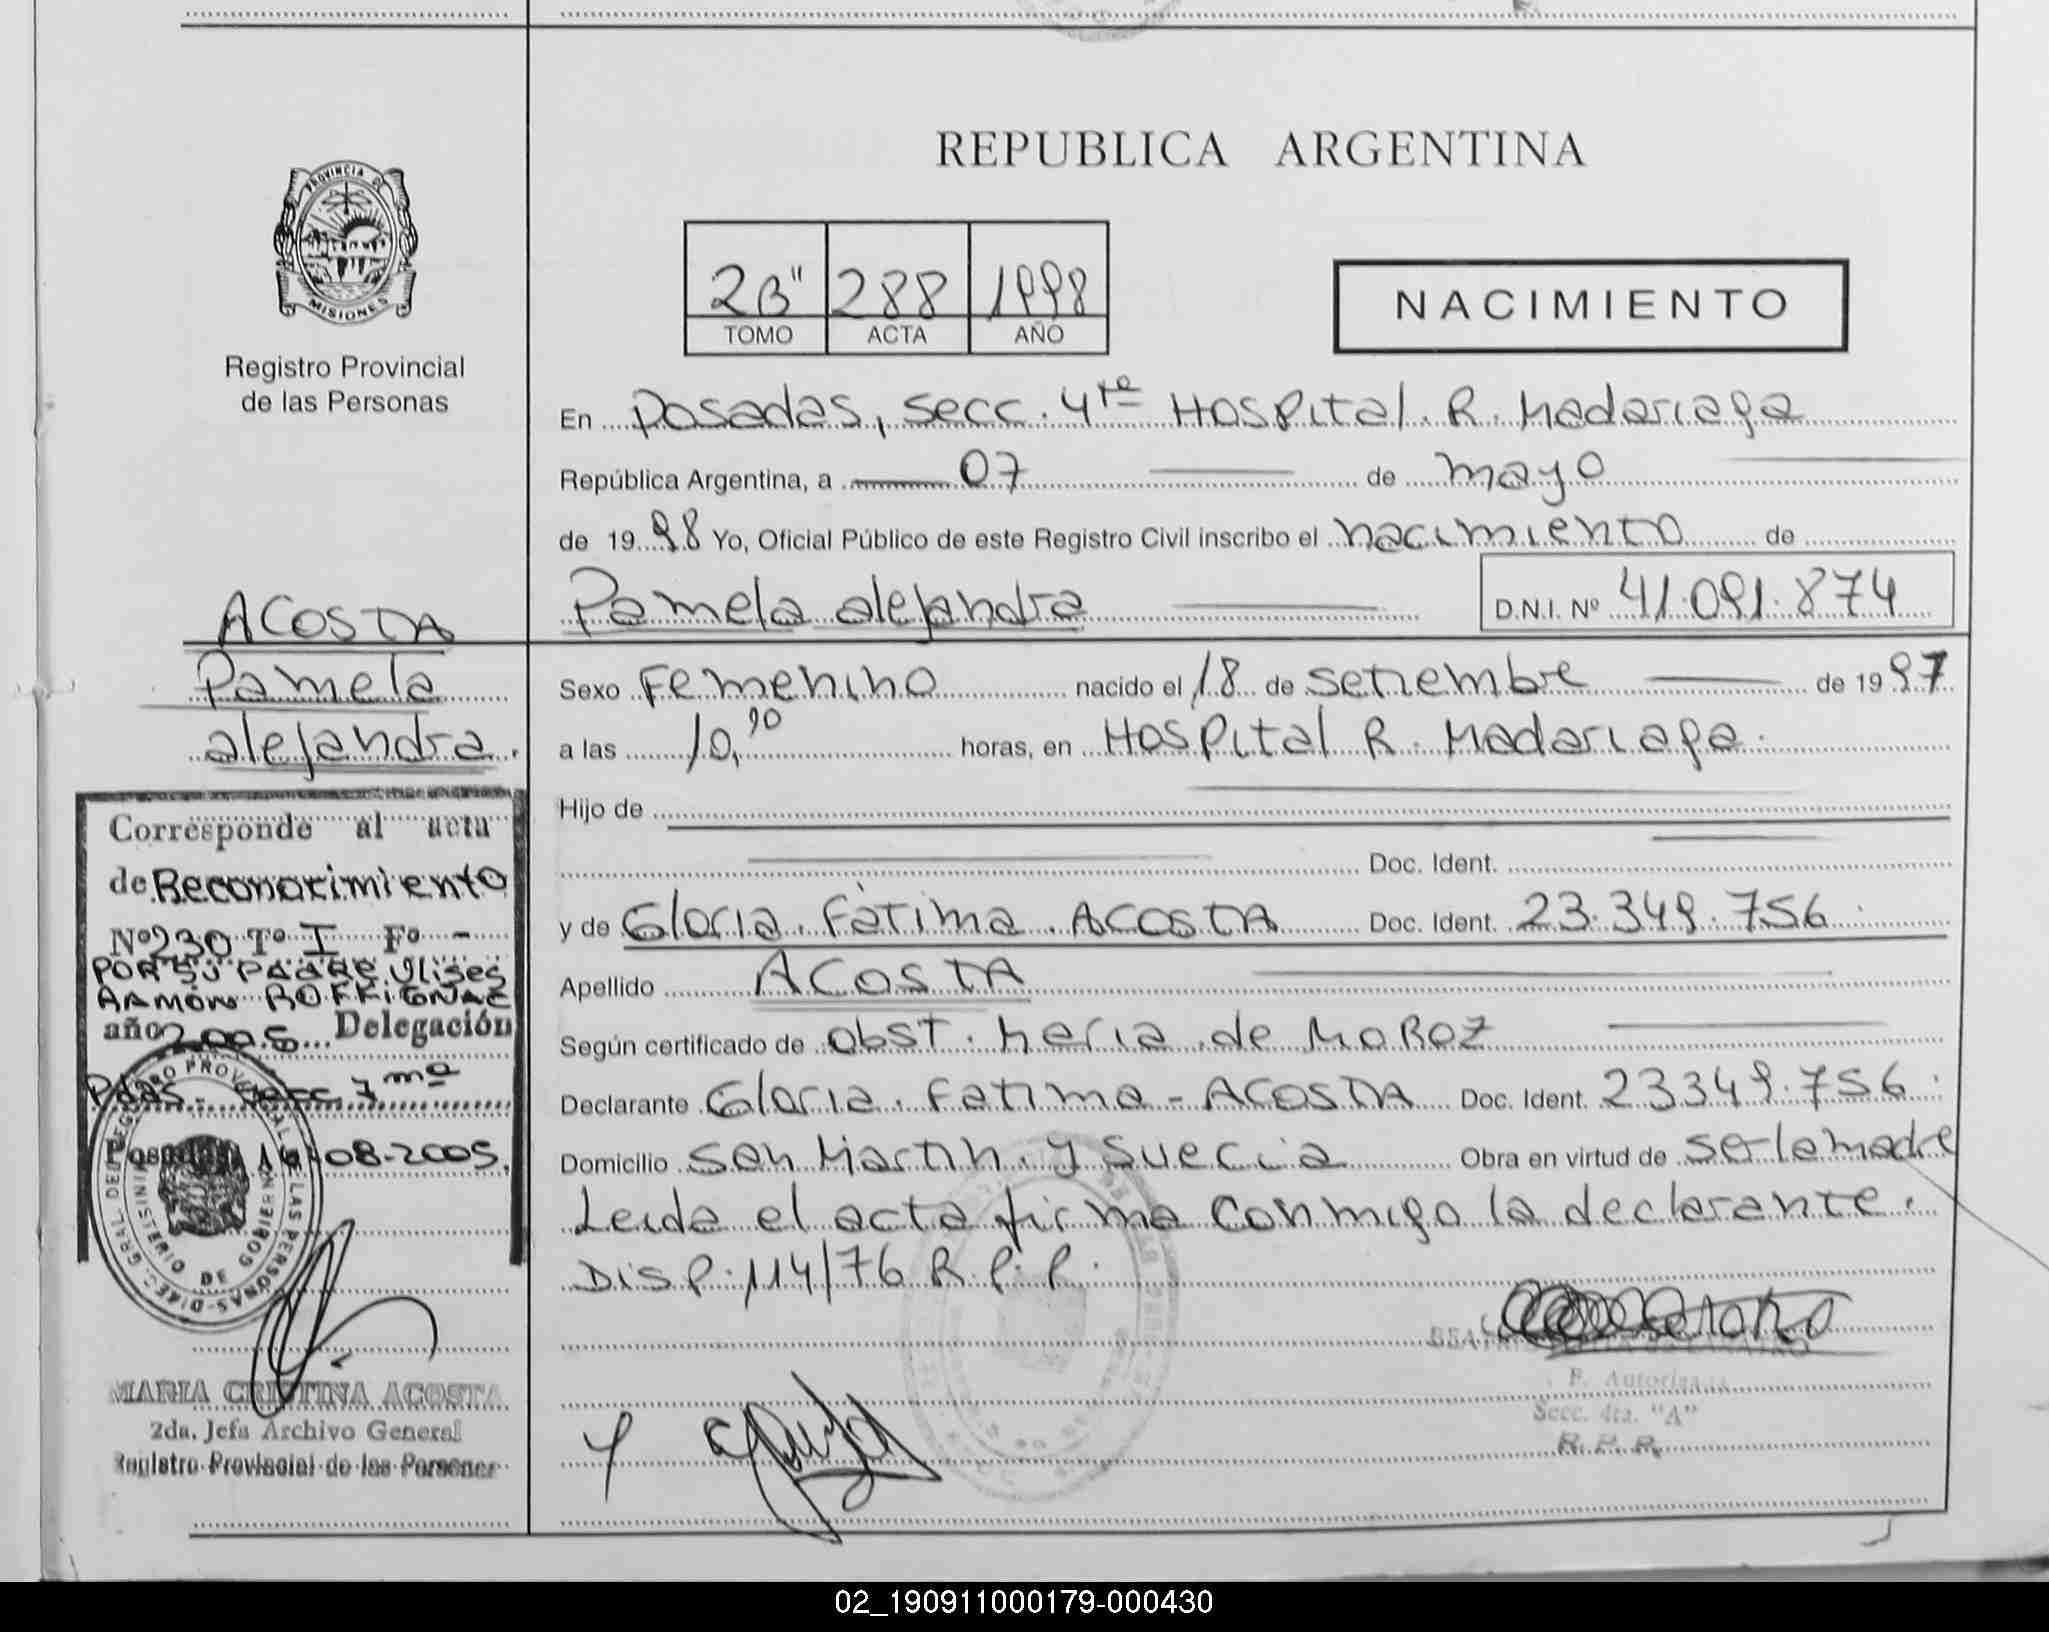 REPUBLICA ARGENTINA
PROVINCIA DE
MISIONES
Registro Provincial
de las Personas
2B" 288 1998
TOMO ACTA AÑO
NACIMIENTO
En Posadas, secc. 4ta Hospital R. Madariaga
República Argentina, a 07 de mayo
de 1998 Yo, Oficial Público de este Registro Civil inscribo el nacimiento de
Pamela alejandra D.N.I. Nº 41.091.874
ACOSTA
Pamela
alejandra.
Sexo Femenino nacido el 18 de setiembre de 1997
a las horas, en Hospital R. Madariaga.
Hijo de
Doc. Ident.
y de Gloria Fátima ACOSTA Doc. Ident. 23.349.756
Apellido ACOSTA
Según certificado de obst. Maria de MOROZ
Declarante Gloria Fatima - ACOSTA Doc. Ident. 23349.756
Domicilio San Martin y Suecia Obra en virtud de ser la madre
Leida el acta firma conmigo la declarante.
Disp. 114/76 R.P.P.
Corresponde al acta
de Reconocimiento
Nº 230 Tº I Fº -
POR SU PADRE Ulises
RAMÓN ROFFIGNAC
año 2005 Delegación
Pdas - secc. 7ma
Posadas, -08-2005.
MINISTERIO DE GOBIERNO
MARIA CRISTINA ACOSTA
2da. Jefa Archivo General
Registro Provincial de las Personas
Secc. 4ta. "A"
R. P. P.
02_190911000179-000430